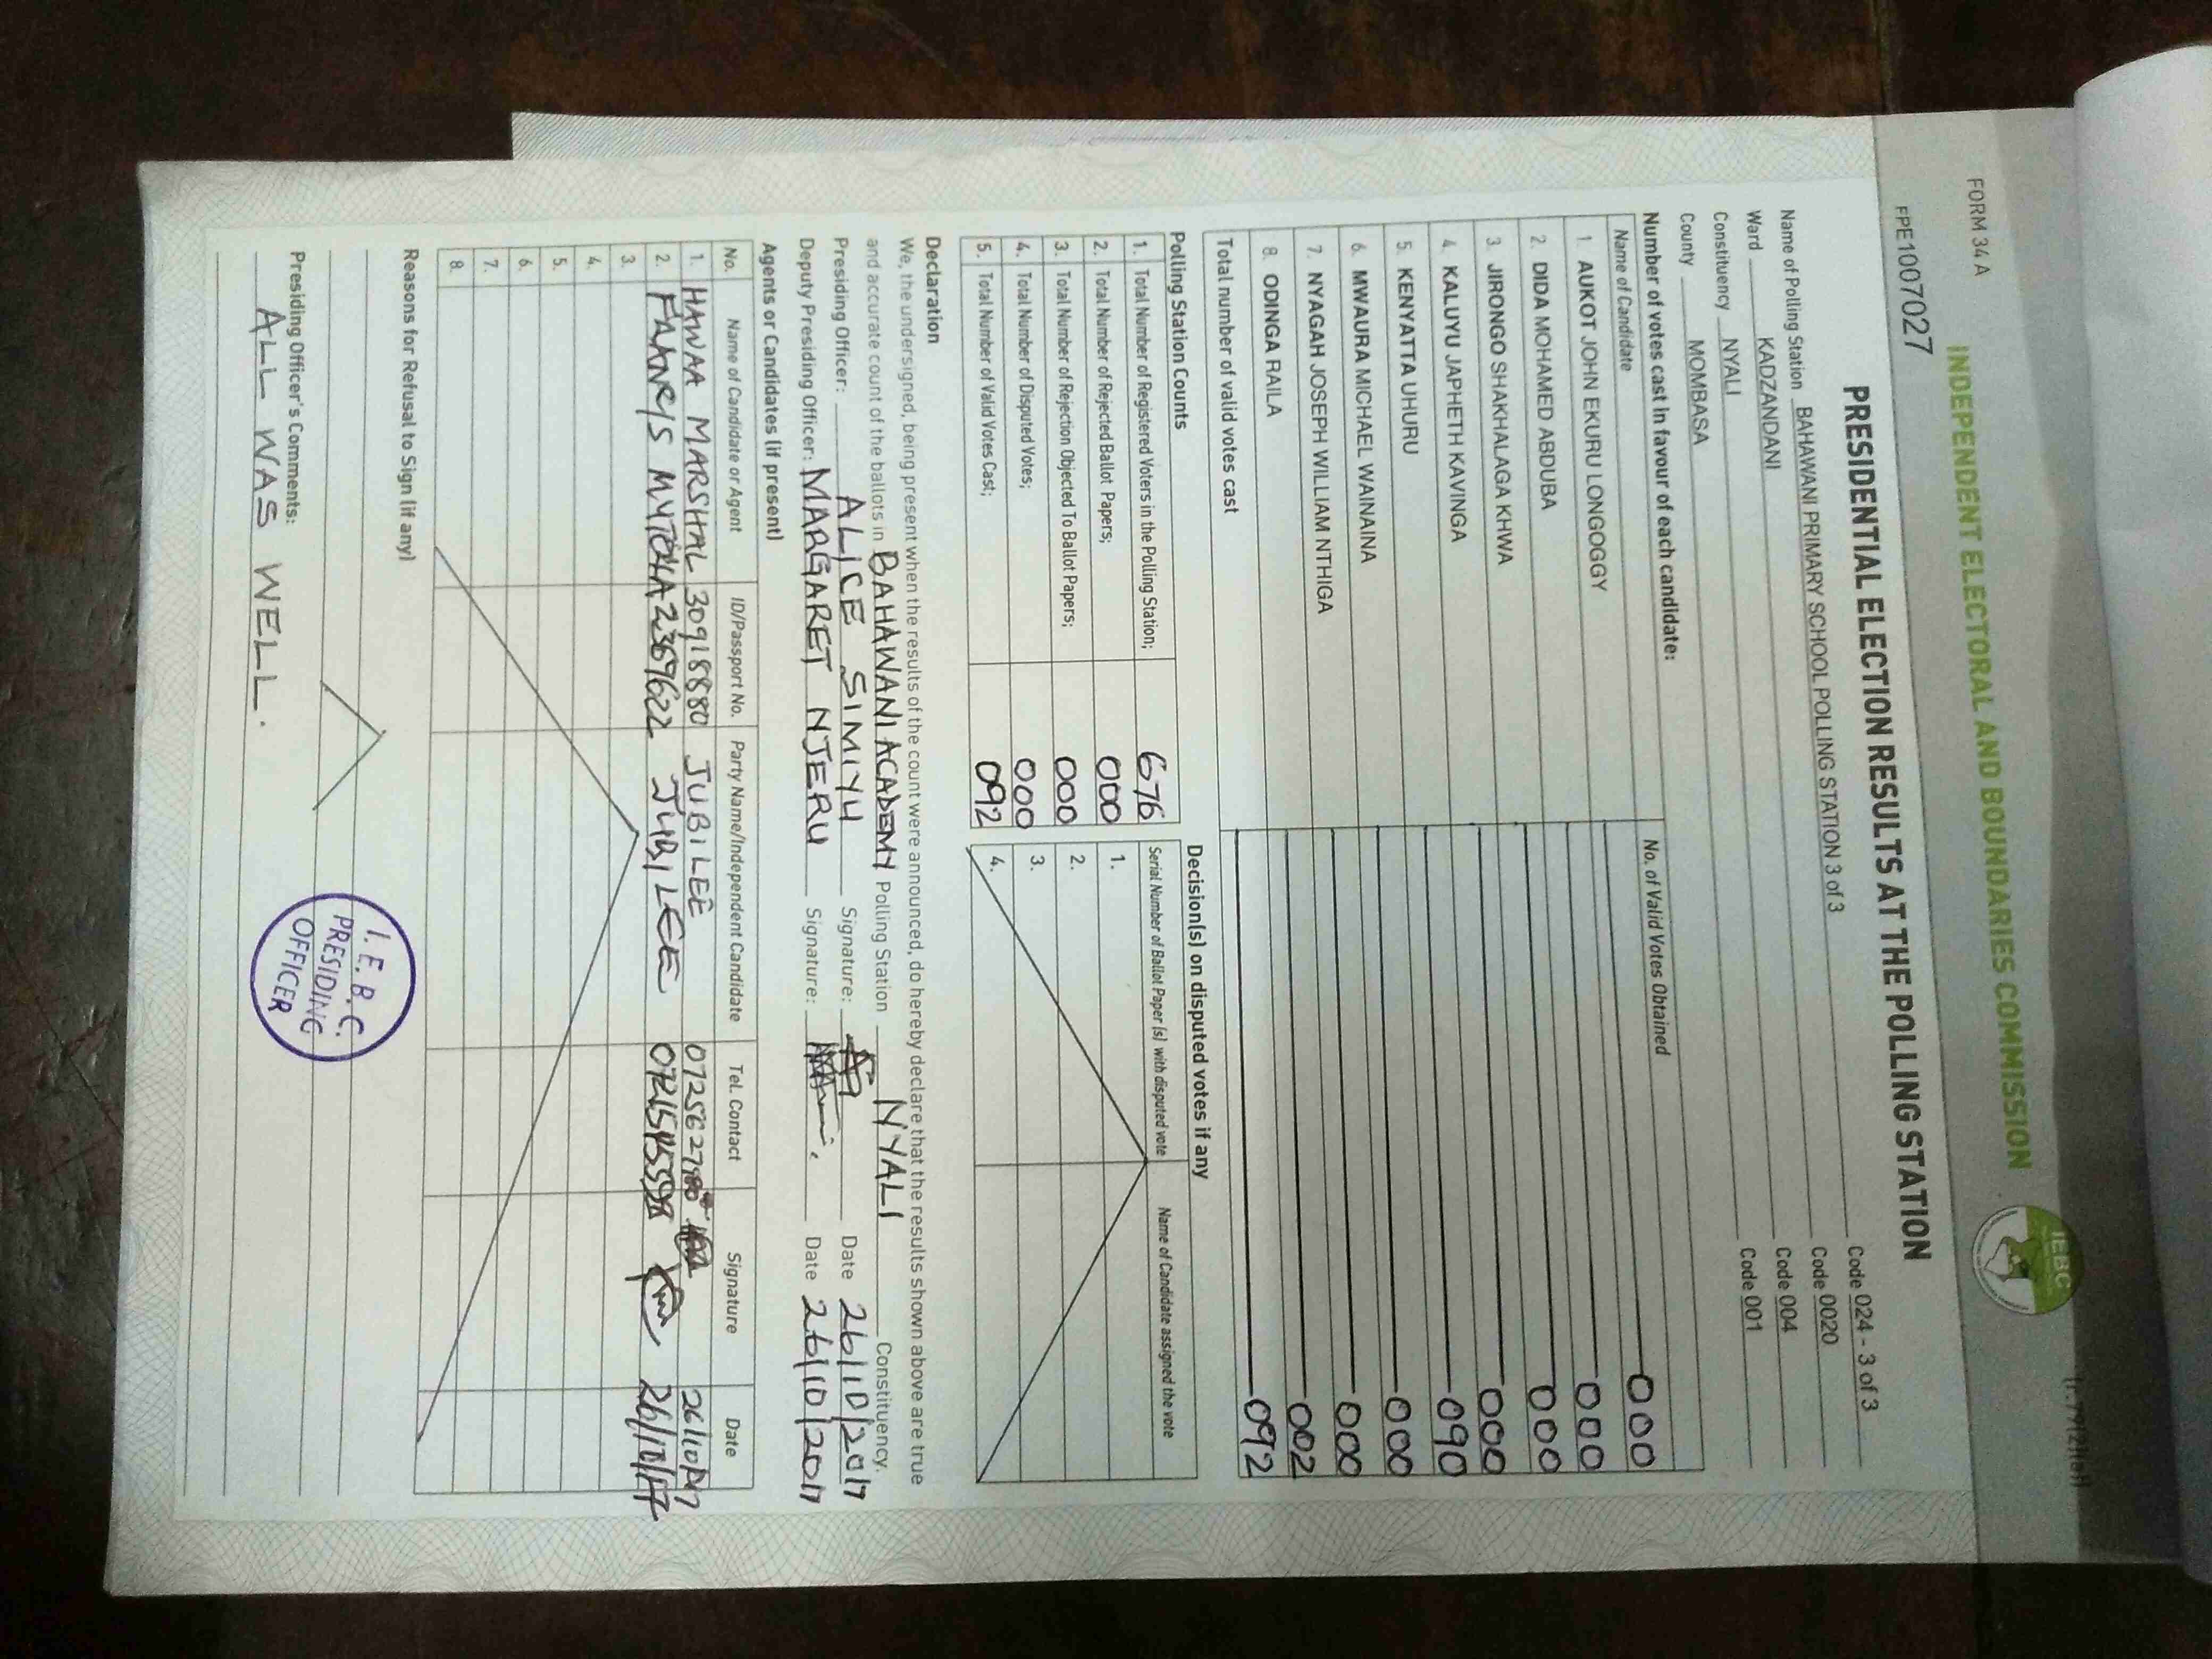 (r.79(2)(a))
FORM 34 A
INDEPENDENT ELECTORAL AND BOUNDARIES COMMISSION
IEBC
FPE1007027
PRESIDENTIAL ELECTION RESULTS AT THE POLLING STATION
Name of Polling Station BAHAWANI PRIMARY SCHOOL POLLING STATION 3 of 3 Code 024 - 3 of 3
Ward KADZANDANI Code 0020
Constituency NYALI Code 004
County MOMBASA Code 001
Number of votes cast in favour of each candidate:
Name of Candidate No. of Valid Votes Obtained
1. AUKOT JOHN EKURU LONGOGGY 000
2. DIDA MOHAMED ABDUBA 000
3. JIRONGO SHAKHALAGA KHWA 000
4. KALUYU JAPHETH KAVINGA 000
5. KENYATTA UHURU 090
6. MWAURA MICHAEL WAINAINA 000
7. NYAGAH JOSEPH WILLIAM NTHIGA 000
8. ODINGA RAILA 002
Total number of valid votes cast 092
Polling Station Counts
1. Total Number of Registered Voters in the Polling Station; 676
2. Total Number of Rejected Ballot Papers; 000
3. Total Number of Rejection Objected To Ballot Papers; 000
4. Total Number of Disputed Votes; 000
5. Total Number of Valid Votes Cast; 092
Decision(s) on disputed votes if any
Serial Number of Ballot Paper (s) with disputed vote Name of Candidate assigned the vote
1.
2.
3.
4.
Declaration
We, the undersigned, being present when the results of the count were announced, do hereby declare that the results shown above are true
and accurate count of the ballots in BAHAWANI ACADEMY Polling Station NYALI Constituency.
Presiding Officer: ALICE SIMIYU Signature: Date 26/10/2017
Deputy Presiding Officer: MARGARET NJERU Signature: Date 26/10/2017
Agents or Candidates (if present)
No. Name of Candidate or Agent ID/Passport No. Party Name/Independent Candidate Tel. Contact Signature Date
1. HAWAA MARSHAL 30918880 JUBILEE 26/10/2017
2. JUBILEE 26/10/17
3.
4.
5.
6.
7.
8.
Reasons for Refusal to Sign (if any)
Presiding Officer's Comments:
ALL WAS WELL.
I. E. B. C.
PRESIDING
OFFICER